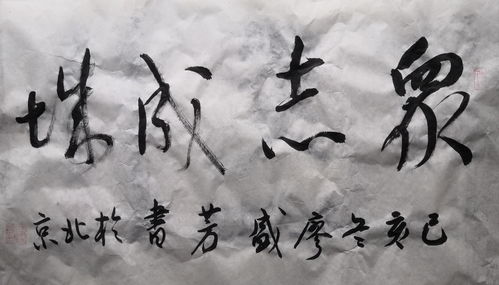 眾志成城
己亥冬廖盛芳書於北京